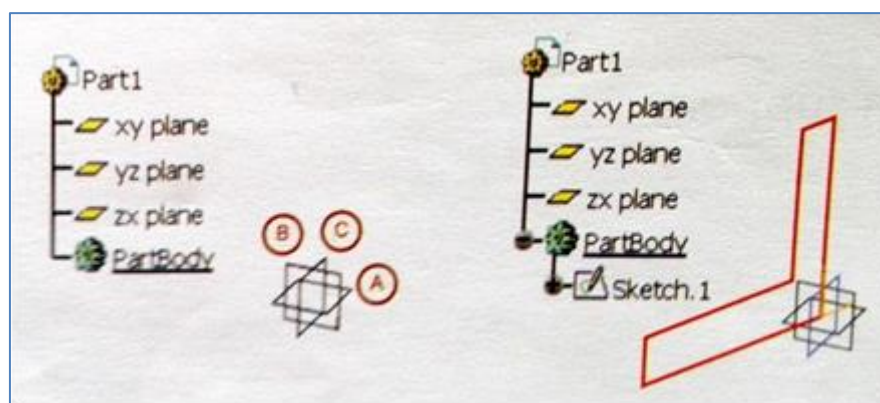 Part1
xy plane
yz plane
zx plane
PartBody
B
C
A
Part1
xy plane
yz plane
zx plane
PartBody
Sketch.1